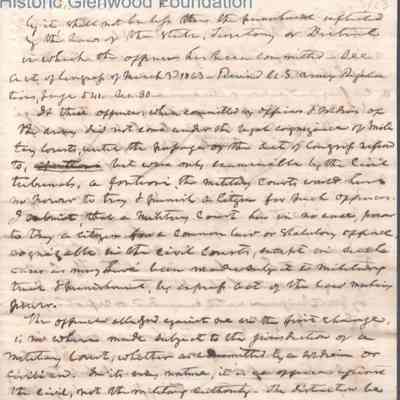 Historic Glenwood Foundation
by it shall not be less than the punishment inflicted
by the laws of the State, Territory or District
in which the offence has been committed. See
Act of Congress of March 3d 1863. Revised U.S. Army Regula
tions, page 541. Sec. 30.
If these offences, when committed by officers & soldiers of
the army did not come under the legal cognizance of mili
tary courts, until the passage of the Act of Congress referd
to, but were only examinable by the Civil
tribunals, a fortiori the military Courts would have
no power to try & punish a citizen for such offences.
I submit that a Military Court has in no case, power
to try a citizen for a Common law or Statutory offence,
cognizable in the civil Courts, except in such
cases as may have been made subject to Military
trial & punishment, by express act of the law making
power.
The offence alledged against me in the first charge,
is no where made subject to the jurisdiction of a
military Court, whether committed by a soldier or
civilian. In its very nature, it is an offence against
the civil, not the military authority. The distinction be